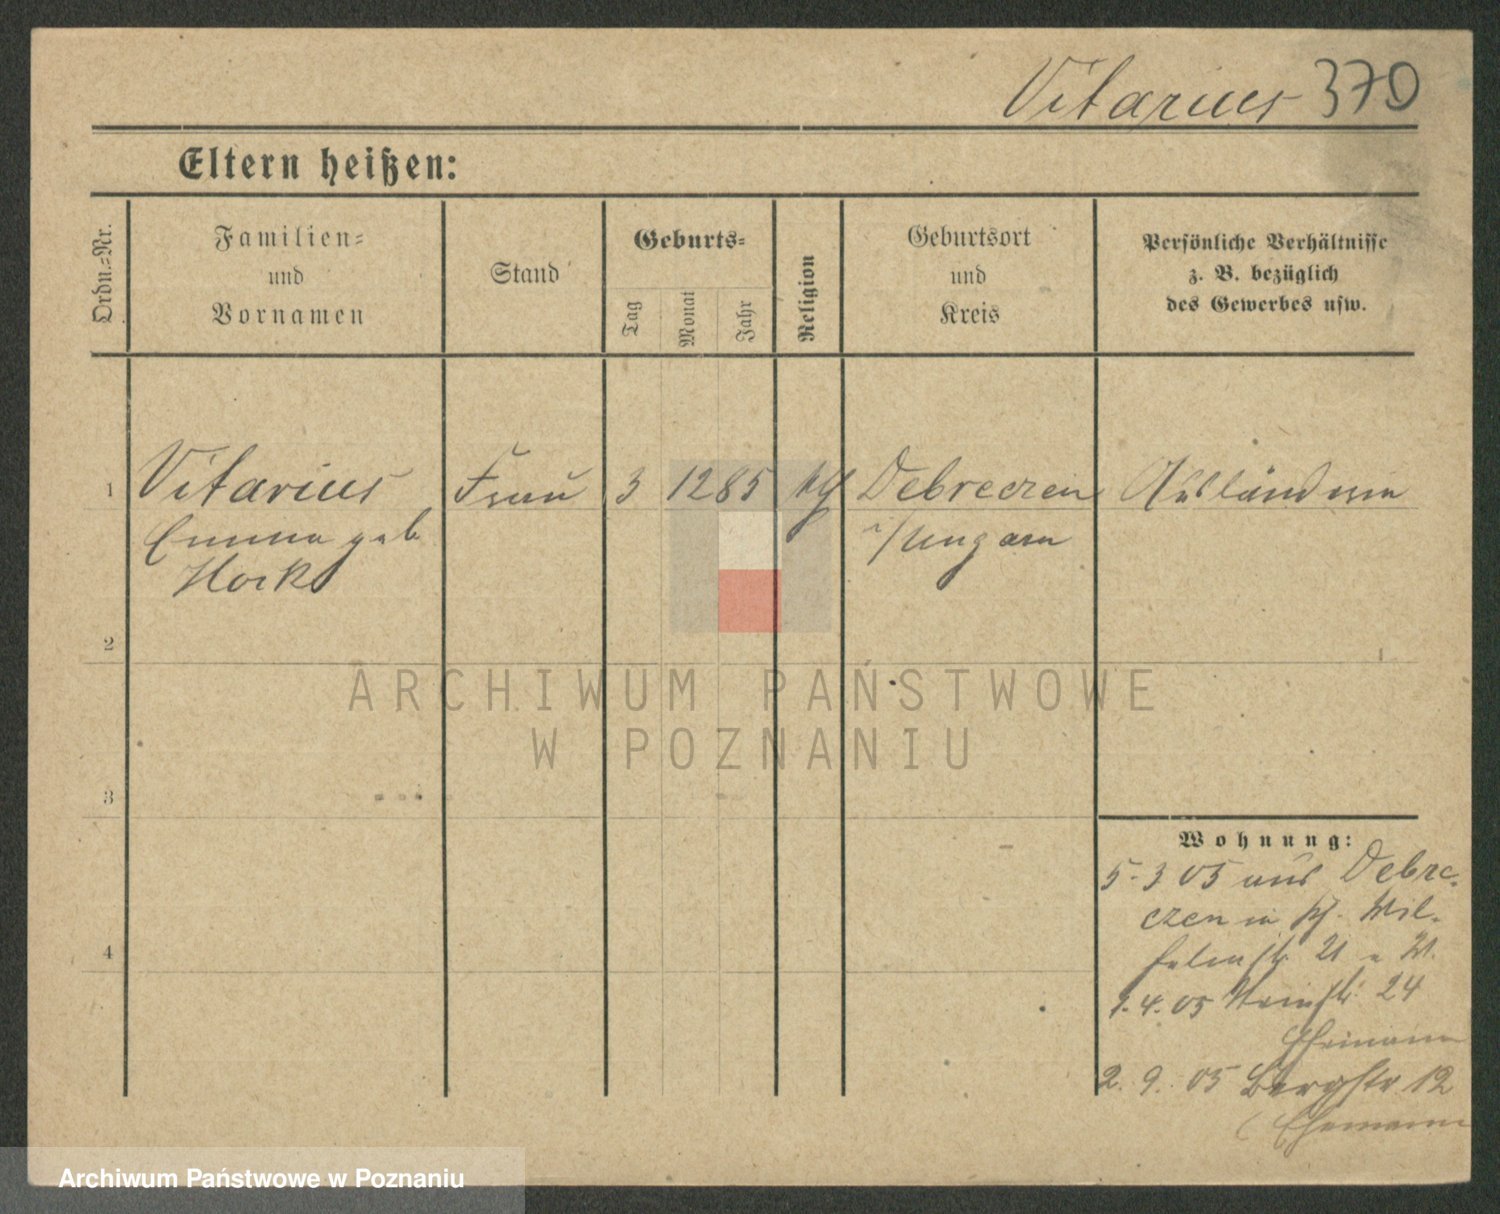 Vitarius 370
Eltern heißen:
Ordn.-Nr.
Familien-
und
Vornamen
Stand
Geburts-
Tag
Monat
Jahr
Religion
Geburtsort
und
Kreis
Persönliche Verhältnisse
z. B. bezüglich
des Gewerbes usw.
1 Vitarius Frau 3 12 85 Debreczen Ausländerin
Emma geb i/Ungarn
Hock
2
ARCHIWUM PAŃSTWOWE
W POZNANIU
3
Wohnung:
5-3 05 aus Debre-
czen in Wil-
helmstr 21
1.4.05 24
Ehemann
4
2.9.05 Bergstr 12
(Ehemann
Archiwum Państwowe w Poznaniu